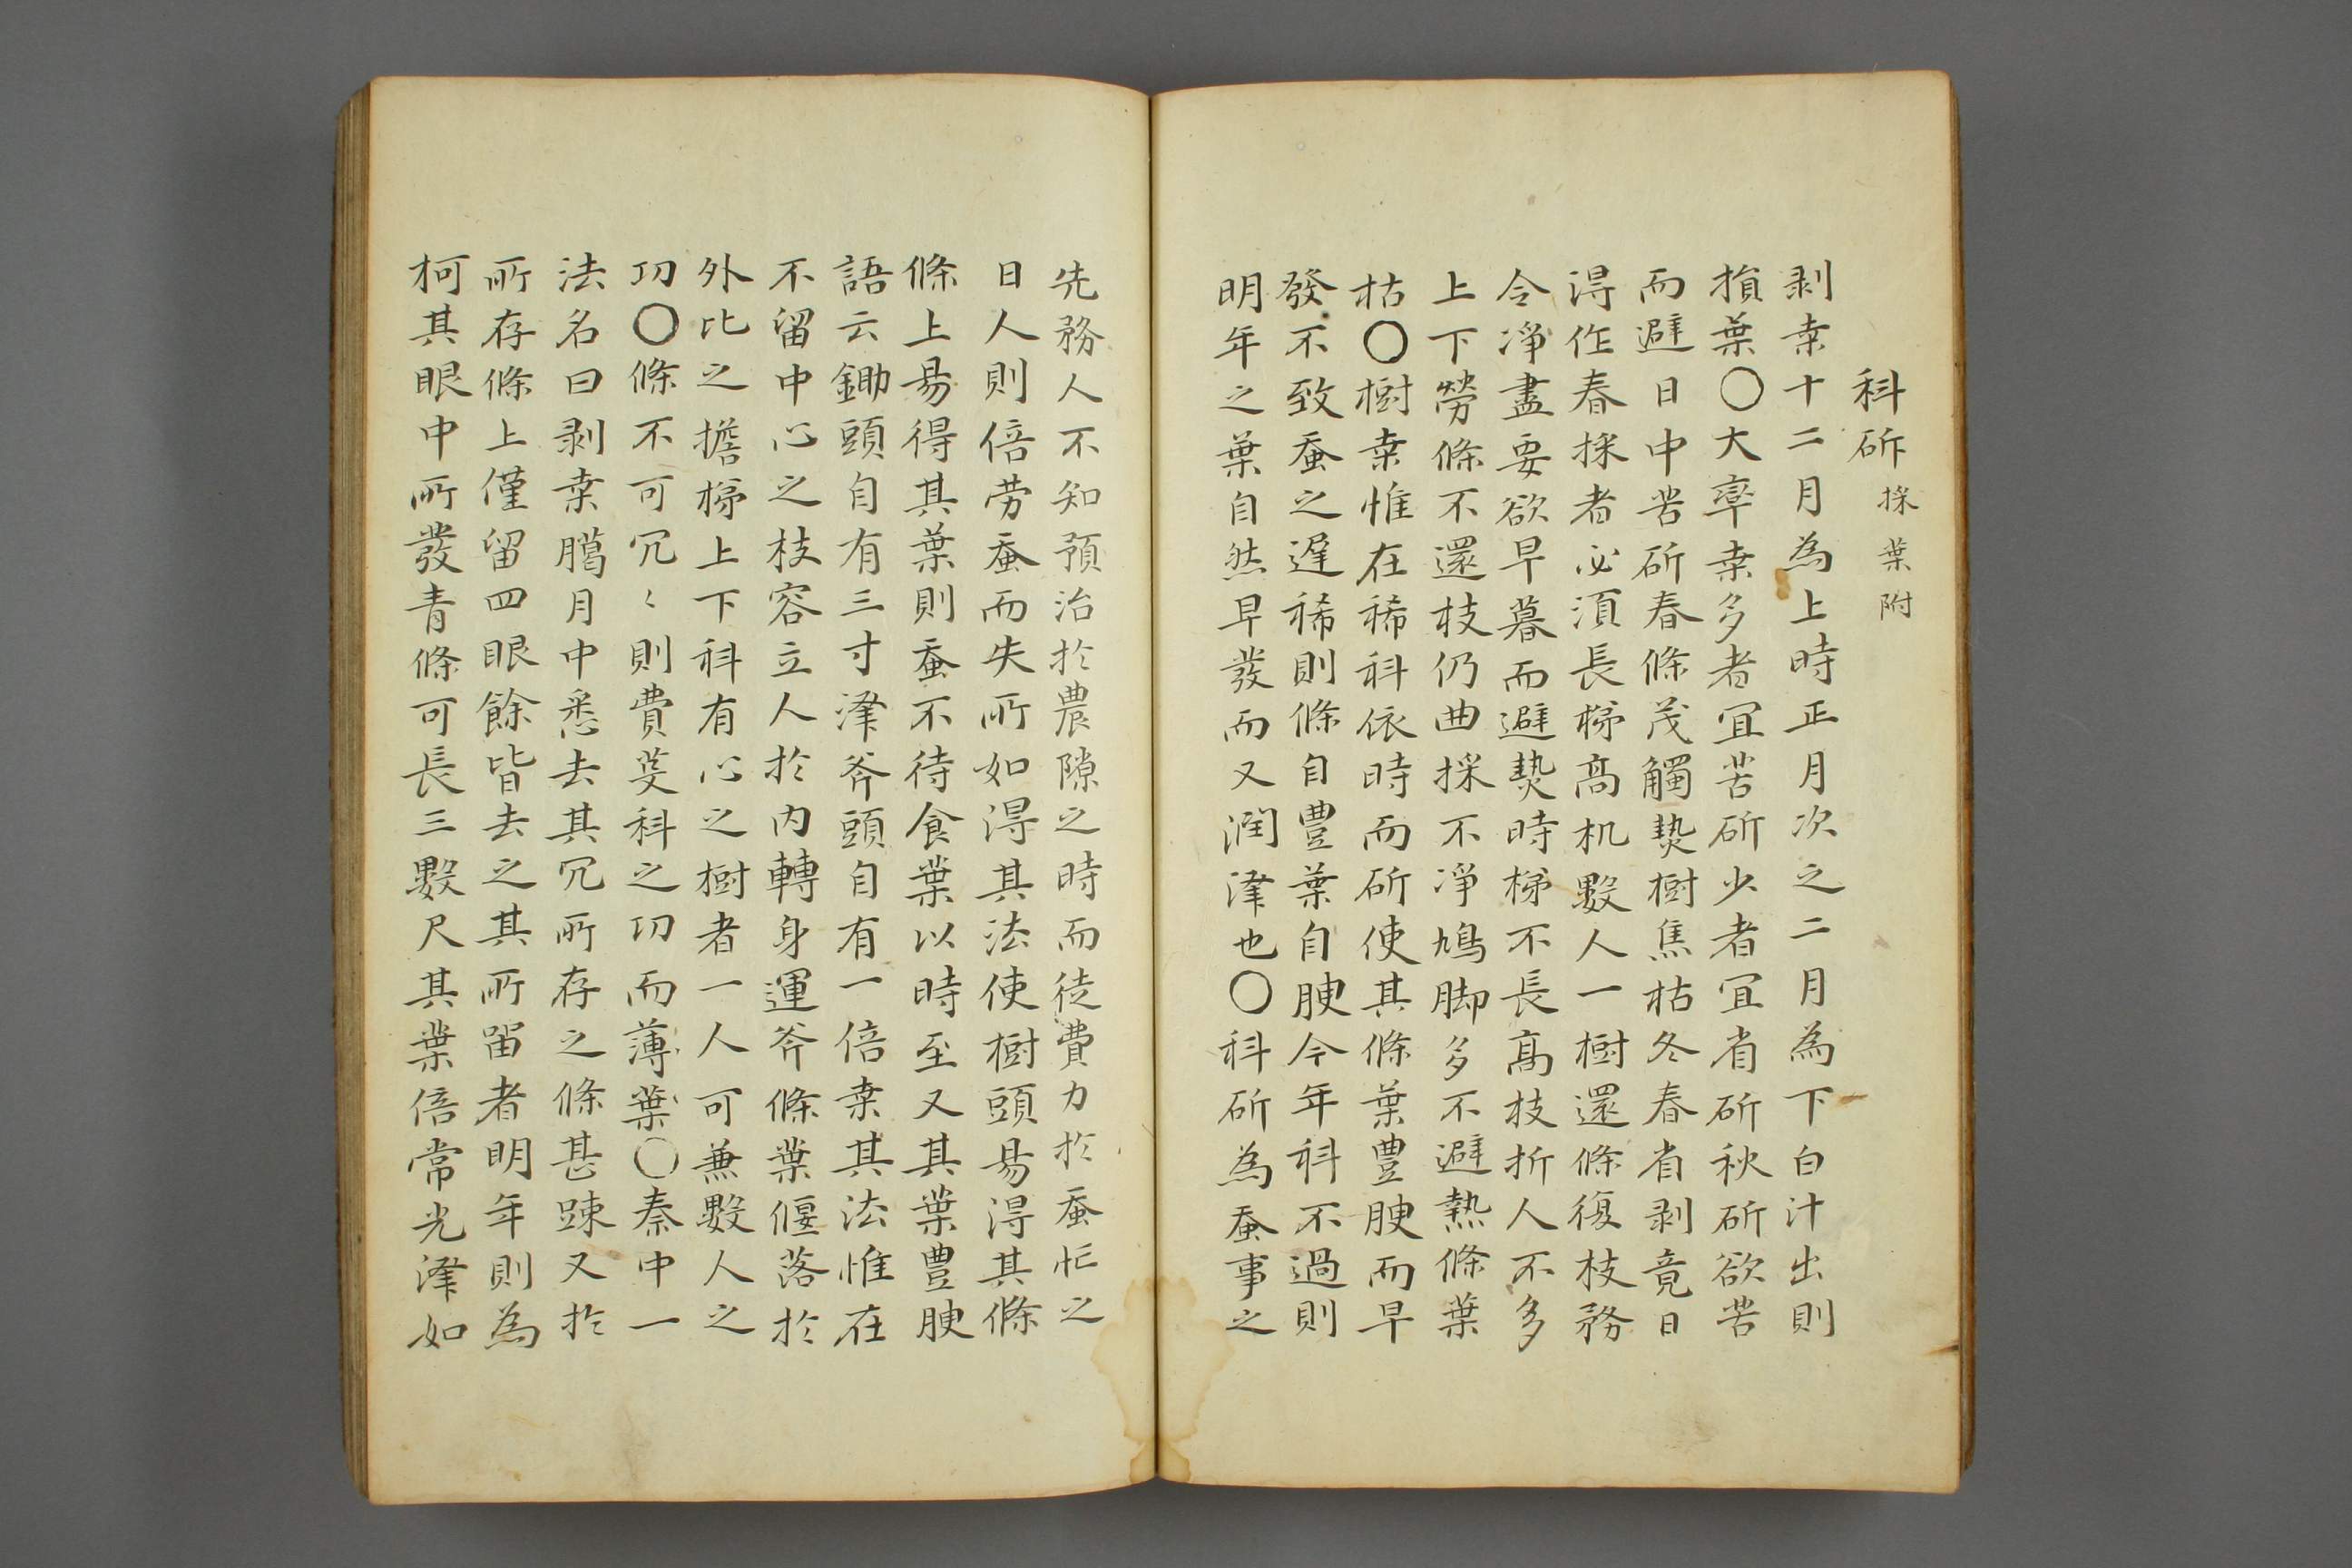 科斫 採葉附
剥桒十二月為上時正月次之二月為下白汁出則
損葉〇大率桒多者宜苦斫少者宜省斫秋斫欲苦
而避日中苦斫春條茂觸𤍠樹焦枯冬春省剥竟日
得作春採者必湏長梯髙机數人一樹還條復枝務
令淨盡要欲早暮而避𤍠時梯不長髙枝折人不多
上下勞條不還枝仍曲採不淨鳩脚多不避熱條葉
枯〇樹桒惟在稀科依時而斫使其條葉豊腴而早
發不致蚕之遅稀則條自豊葉自腴今年科不過則
明年之葉自然早發而又潤澤也〇科斫為蚕事之
先務人不知預治扵農隙之時而徒費力扵蚕忙之
日人則倍労蚕而失所如得其法使樹頭易得其條
條上易得其葉則蚕不待食葉以時至又其葉豊腴
語云鋤頭自有三寸澤斧頭自有一倍桒其法惟在
不留中心之枝容立人扵内轉身運斧條葉偃落扵
外比之擔梯上下科有心之樹者一人可兼數人之
功〇條不可冗〻則費芟科之功而薄葉〇秦中一
法名曰剥桒臈月中悉去其冗所存之條甚踈又扵
所存條上僅留四眼餘皆去之其所留者明年則為
柯其眼中所發青條可長三數尺其葉倍常光澤如